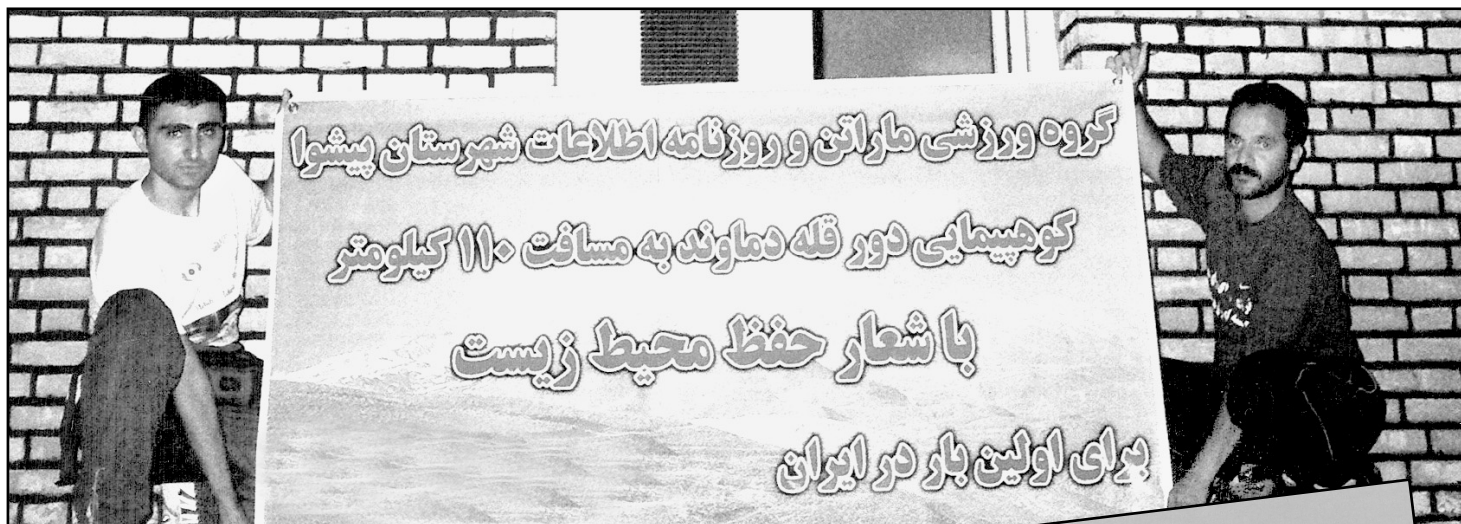 گروه ورزشی ماراتن و روزنامه اطلاعات شهرستان پیشوا
کوهپیمایی دور قله دماوند به مسافت ۱۱۰ کیلومتر
با شعار حفظ محیط زیست
برای اولین بار در ایران